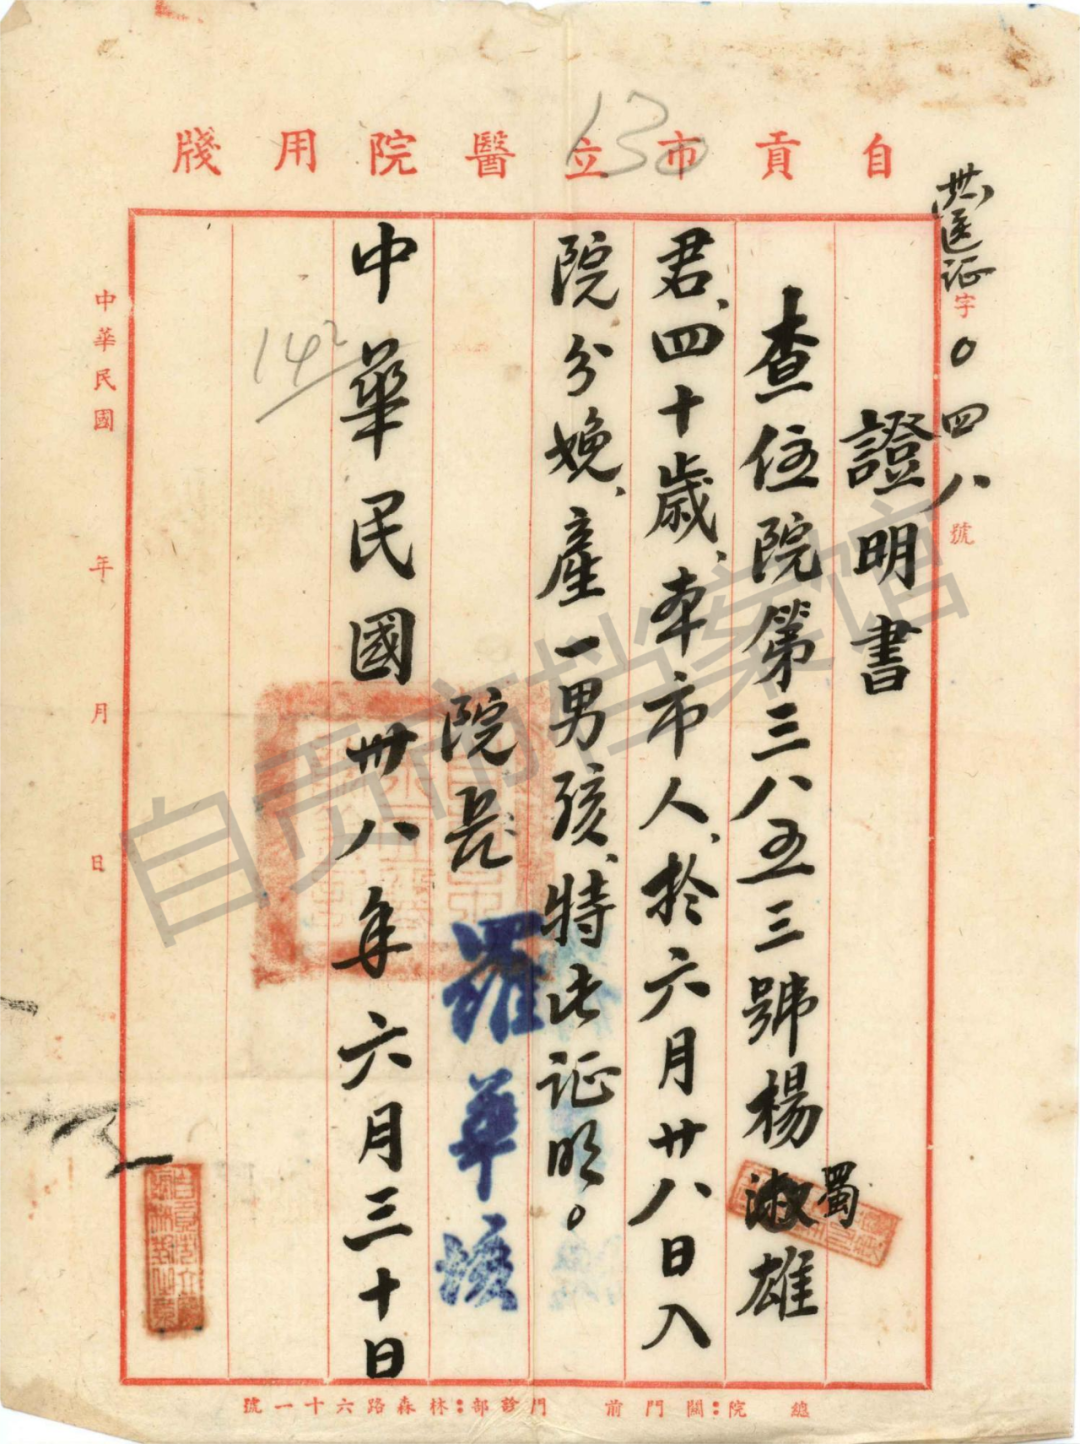 自貢市立醫院用牋
130
世医证字0四八號
證明書
查住院第三八五三號楊淑蜀雄
君、四十歲、本市人、於六月廿八日入
院分娩、產一男孩、特此证明。
院長 羅華
中華民國卅八年六月三十日
142
中華民國 年 月 日
總院:關門前 門診部:林森路六十一號
自贡市档案馆